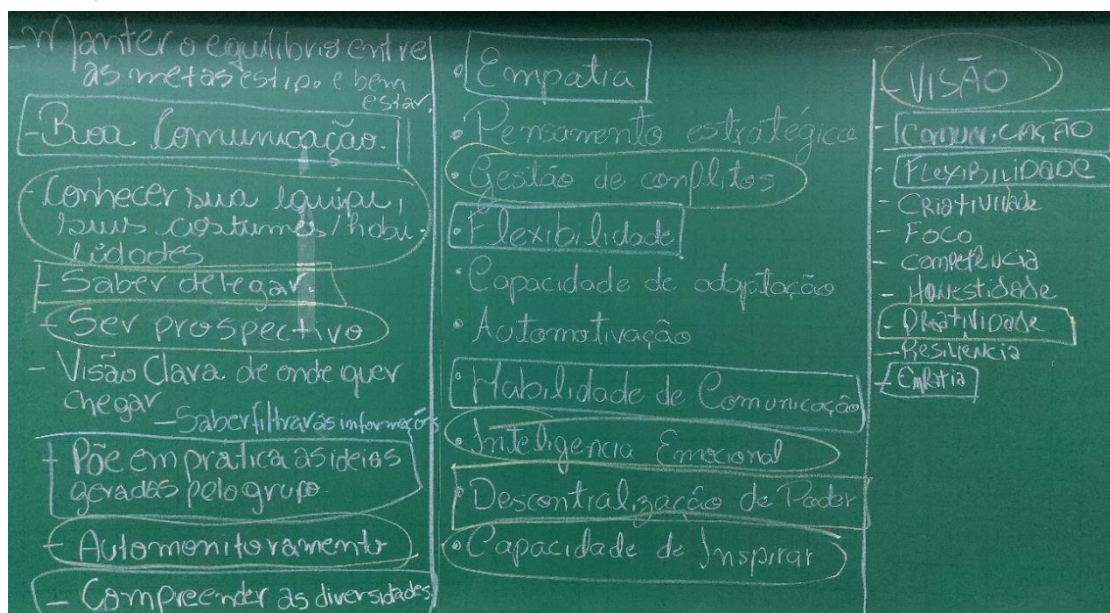 - Manter o equilibrio entre
as metas estip. e bem
estar.
- Boa Comunicação.
- Conhecer sua equipe,
seus costumes/habi-
lidades
- Saber delegar.
- Ser prospectivo
- Visão Clara de onde quer
chegar
- Saber filtrar as informações
- Põe em pratica as ideias
geradas pelo grupo.
- Automonitoramento
- Compreender as diversidades
• Empatia
• Pensamento estratégico
• Gestão de conflitos
• Flexibilidade
• Capacidade de adaptação
• Automotivação
• Habilidade de Comunicação
• Inteligencia Emocional
• Descontralização de Poder
• Capacidade de Inspirar
- VISÃO
- COMUNICAÇÃO
- FLEXIBILIDADE
- CRIATIVIDADE
- FOCO
- COMPETÊNCIA
- HONESTIDADE
- RESILIENCIA
- EMPATIA